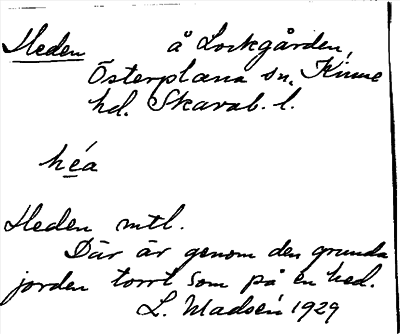 Heden å Lockgården,
Österplana sn, Kinne
hd. Skarab. l.
héa
Heden mtl.
Där är genom den grunda
jorden torrt som på en hed.
L. Madsén 1929